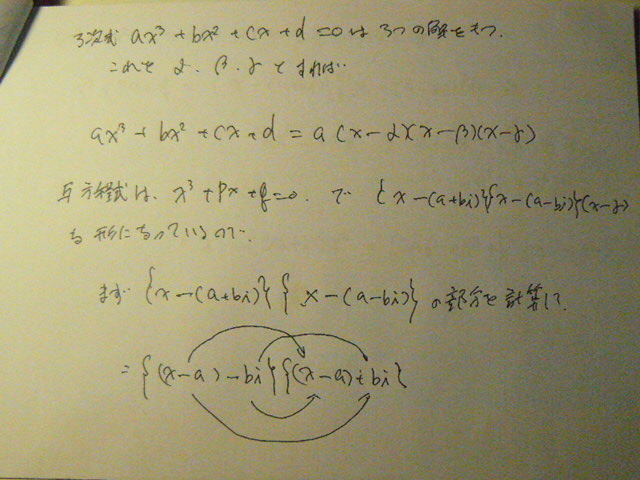 3次式 ax³+bx²+cx+d=0は3つの解をもつ.
これを α、β、γとすれば…
ax³+bx²+cx+d=a(x-α)(x-β)(x-γ)
方程式は、x³+px+q=0. で {x-(a+bi)}{x-(a-bi)}(x-γ)
な形になっているので.
まず {x-(a+bi)}{x-(a-bi)} の部分を計算して.
={(x-a)-bi}{(x-a)+bi}